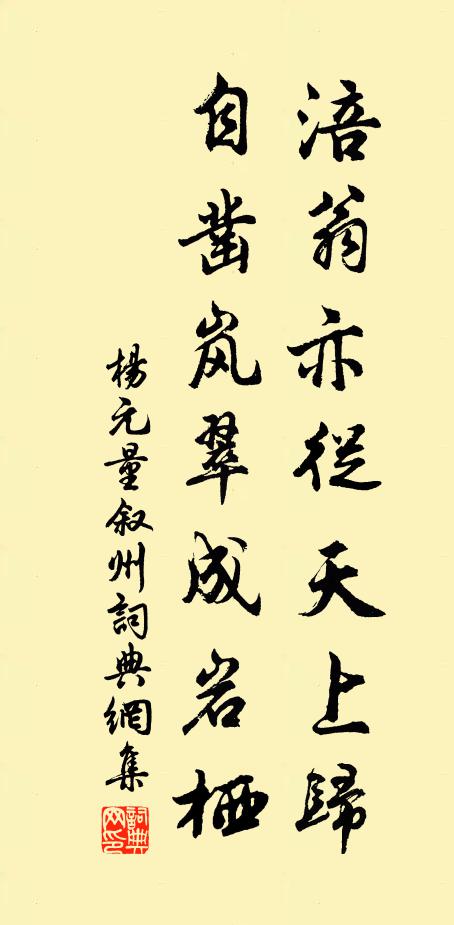 涪翁亦從天上歸
自凿岚翠成岩栖
楊元量叙州詞典網集
詞典网印